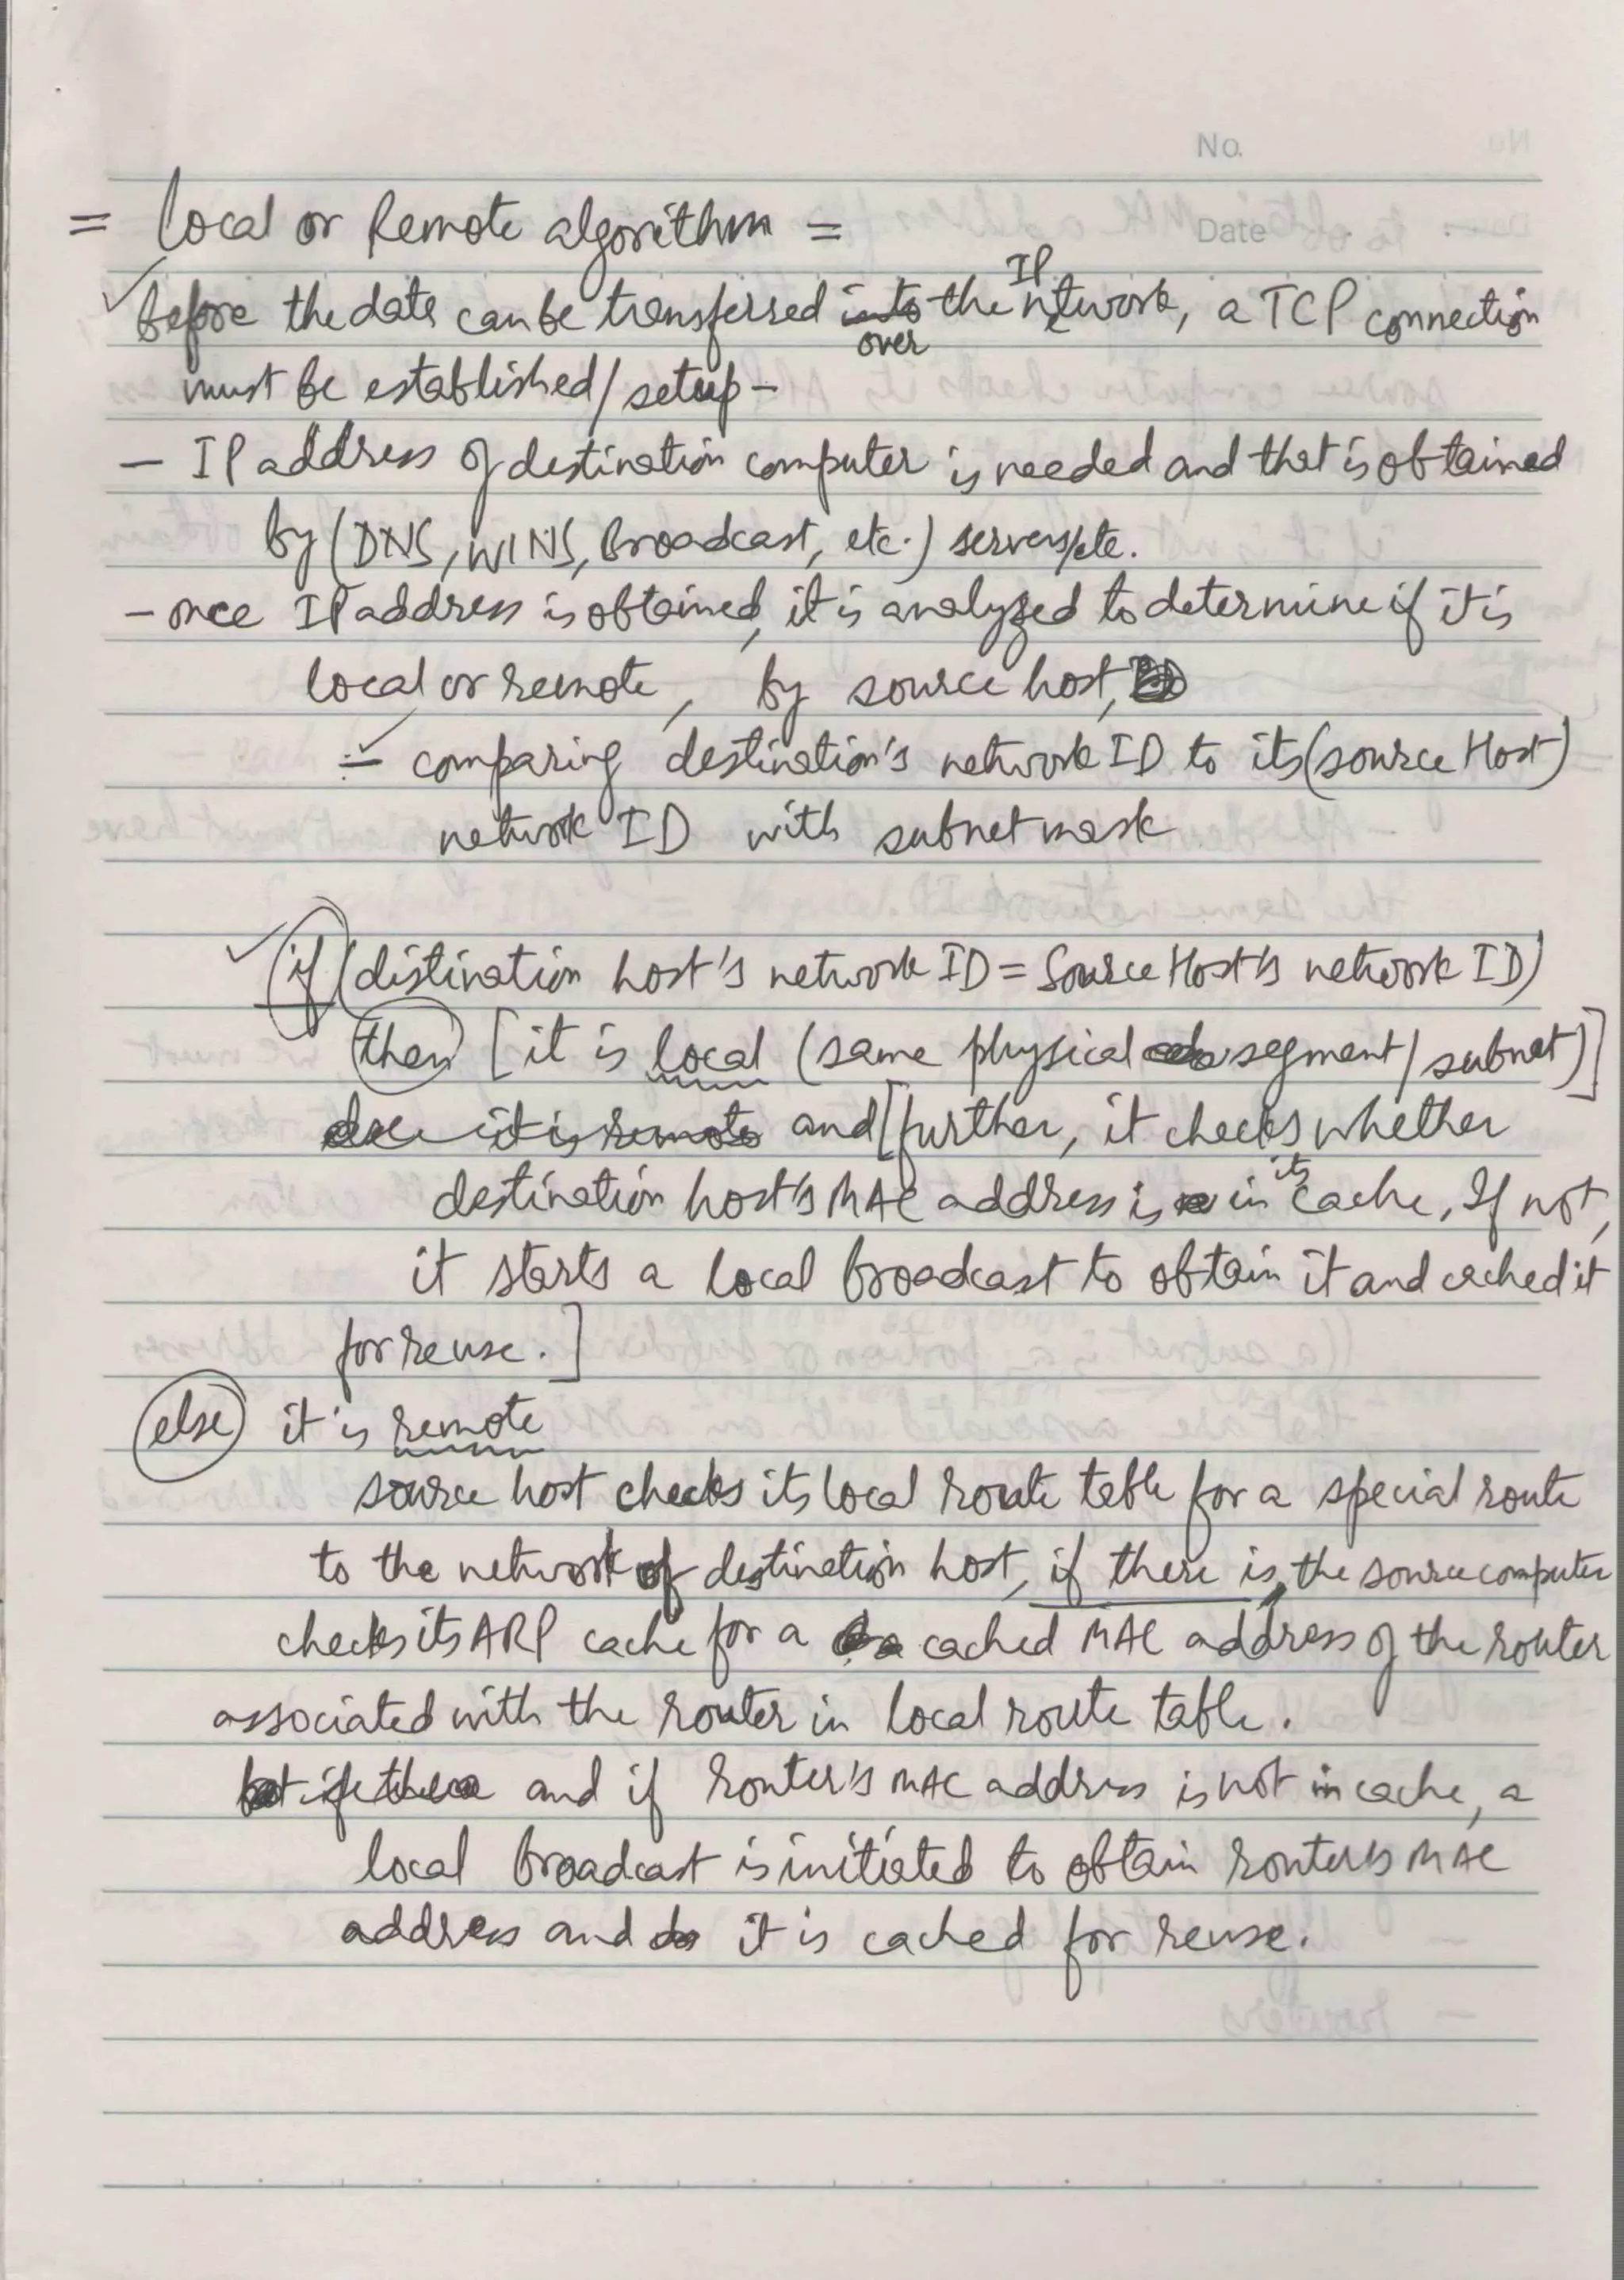 No.
Date
= Local or Remote algorithm =
✓ Before the data can be transferred into over the IP network, a TCP connection
must be established/setup -
- IP address of destination computer is needed and that is obtained
by (DNS, WINS, Broadcast, etc.) servers/etc.
- once IP address is obtained, it is analyzed to determine if it is
local or remote, by source host,
- ✓ comparing destination's network ID to its (source Host)
network ID with subnet mask
✓ if (distination host's network ID = Source Host's network ID)
then [it is local (same physical segment/subnet)]
else it is remote and [further, it checks whether
destination host's MAC address is in its cache, If not,
it starts a local broadcast to obtain it and cached it
for reuse.]
else it is remote
source host checks its local route table for a special route
to the network of destination host, if there is, the source computer
checks its ARP cache for a cached MAC address of the router
associated with the router in local route table.
but if there and if router's MAC address is not in cache, a
local broadcast is initiated to obtain router's MAC
address and it is cached for reuse.